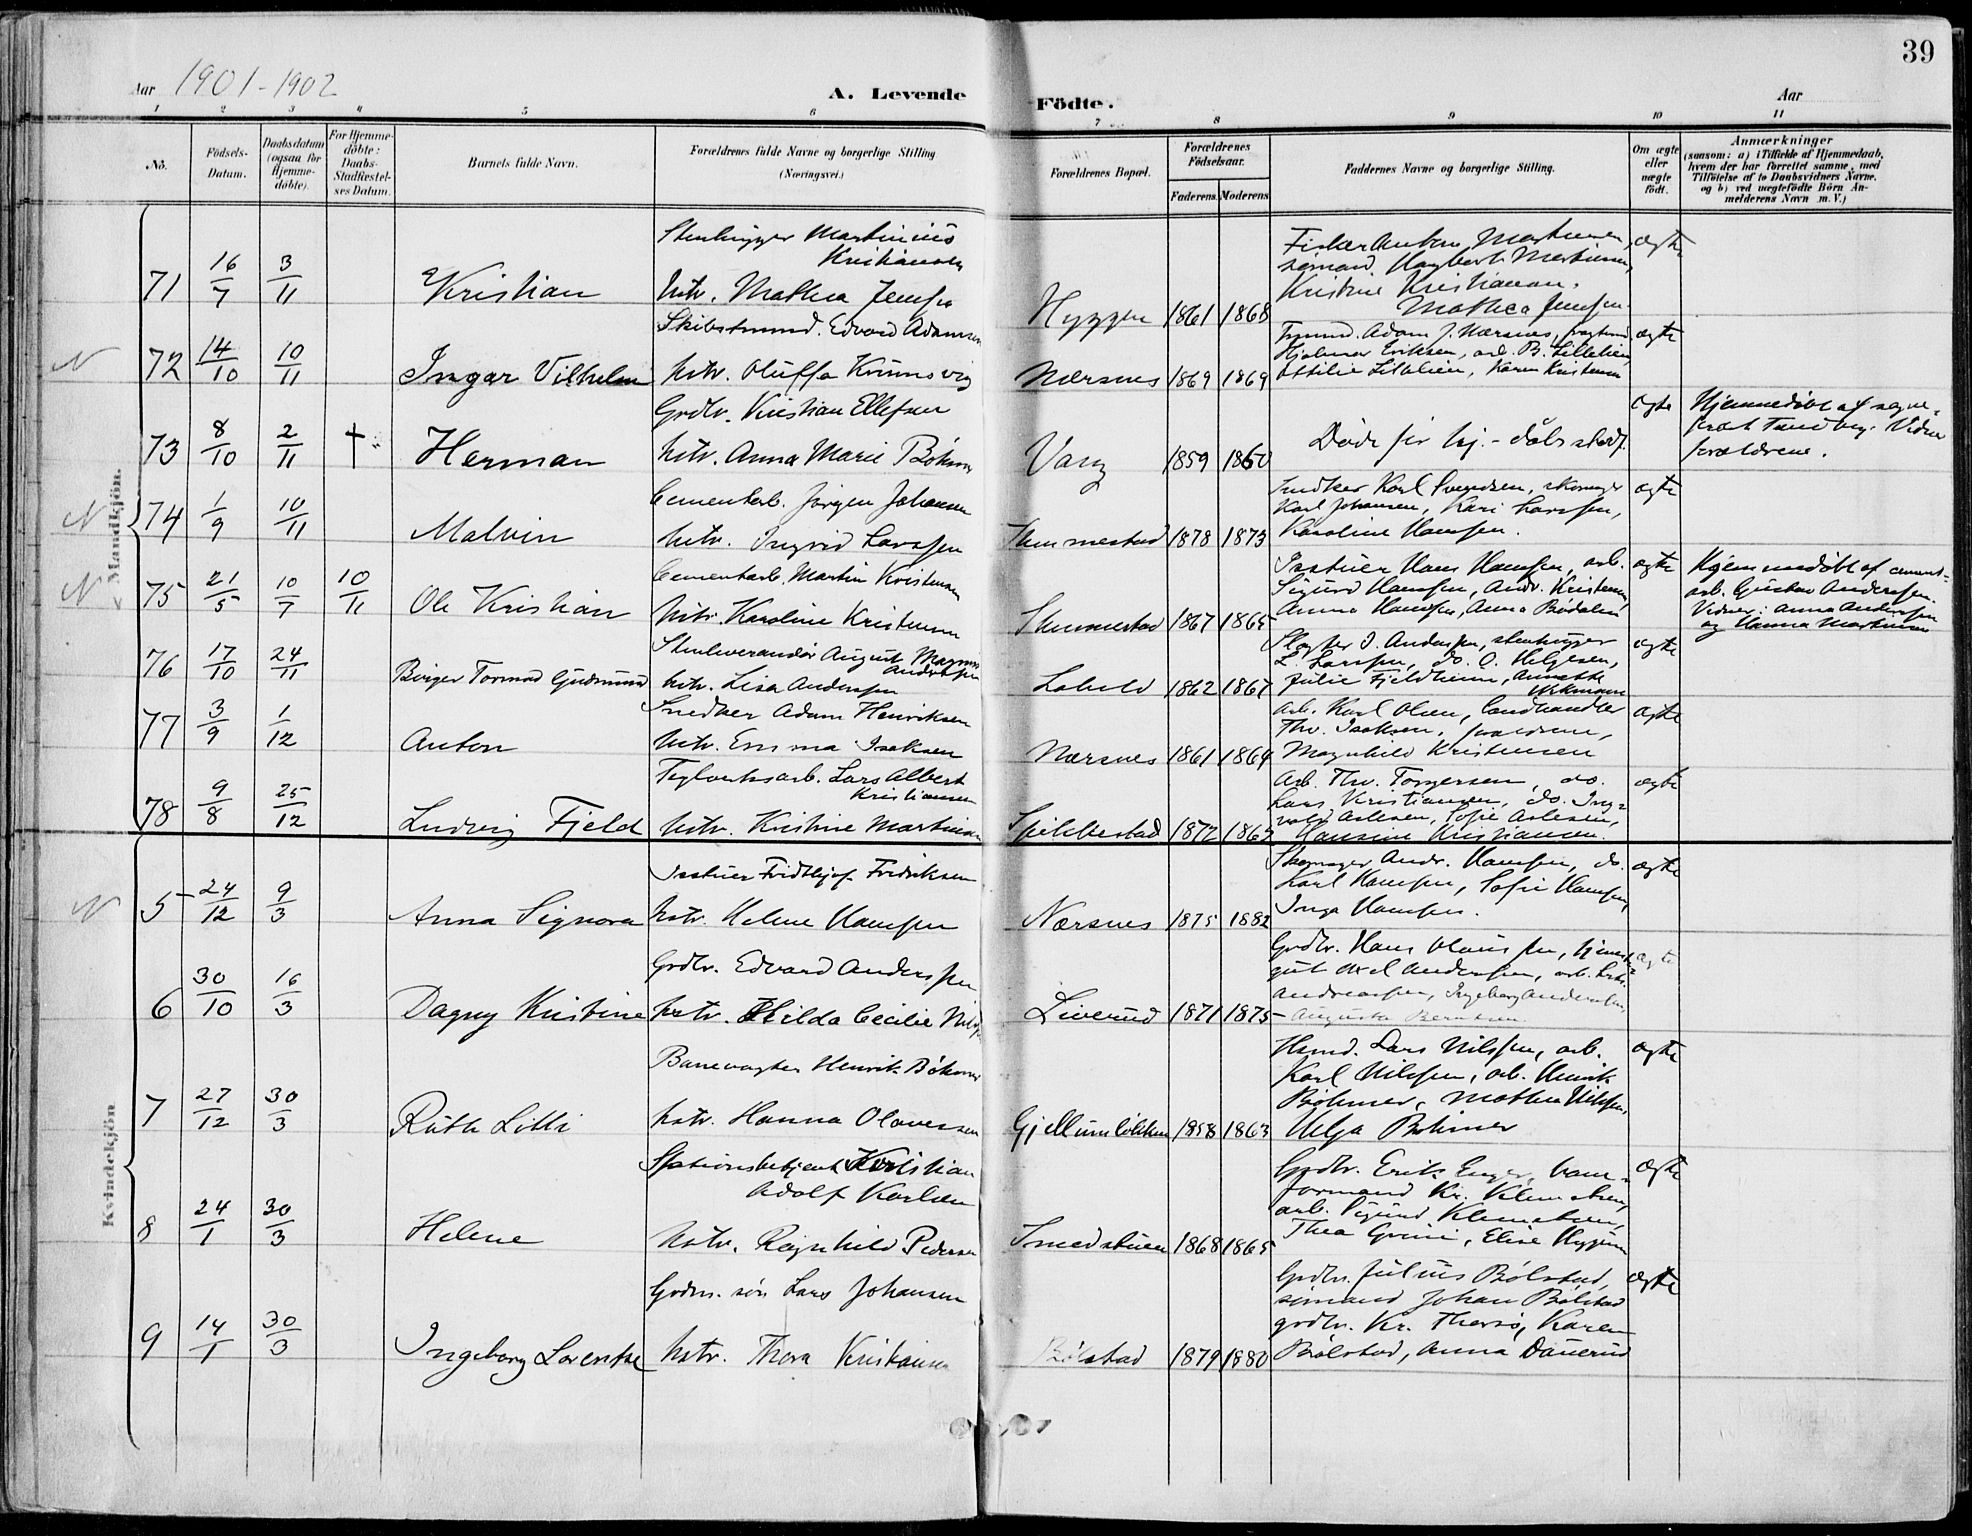 39
Aar 1901-1902
A. Levende Födte.
Aar
1 2 3 4 5 6 7 8 9 10 11
No.
Födsels-Datum.
Daabsdatum (ogsaa for Hjemme-døbte).
For Hjemme-döbte: Daabs-Stadfæstel-ses Datum.
Barnets fulde Navn.
Forældrenes fulde Navne og borgerlige Stilling (Næringsvei.)
Forældrenes Bopæl.
Forældrenes Födselsaar.
Faderens. Moderens.
Faddernes Navne og borgerlige Stilling.
Om ægte eller uægte født.
Anmærkninger
(saasom: a) i Tilfælde af Hjemmedaab, hvem der har forrettet samme, med Tilföielse af to Daabsvidners Navne, og b) ved uægtefödte Börn An-melderens Navn m. V.)
Mandkjön.
71 16/7 3/11 Kristian
Stenhugger Martinius Kristiansen
Hstr. Mathea Jensen
Hyggen 1861 1868
Fisker Anton Martinsen, sømand Hagbart Martinsen, Kristine Kristiansen, Mathea Jensen
ægte
N 72 14/10 10/11 Ingar Vilhelm
Skibstmmd. Edvard Adamsen
hstr. Oluffa
Nærsnes 1869 1869
Adam J. Nærsnes,
Hjalmar Eriksen, arb. B. Lillelien,
Ottilie Lillelien, Karen Kristensen
ægte
73 8/10 2/11 † Herman
Grdbr. Kristian Ellefsen
hstr. Anna Marie Böhmer
Vang 1859 1860
Døde før hj.-dåbs stadf.
ægte
Hjemmedøbt af sogne-
prest Tandberg. Vidner
forældrene.
N 74 1/9 10/11 Malvin
Cementarb. Jørgen Johansen
hstr. Ingrid Larssen
Slemmestad 1878 1873
Snedker Karl Svendsen, skomager
Karl Johansen, Kari Larssen,
Karoline Hanssen.
ægte
N 75 21/5 10/7 10/11 Ole Kristian
Cementarb. Martin Kristensen
hstr. Karoline Kristensen
Slemmestad 1867 1865
Hans Hanssen, arb.
Sigurd Hanssen, Andr. Kristensen,
Anna Hanssen, Anna Bødalen
ægte
Hjemmedøbt af cement-
arb. Gustav Anderssen.
Vidner: Anna Anderssen
og Hanna Martinsen
76 17/10 24/11 Birger Tormod Gudmund
Stenleverandør August Magnus Anderssen
hstr. Lisa Anderssen
1862 1867
J. Anderssen, stenhugger
L. Larssen, do. O. Helgesen,
Julie Fjeldheim, Annette
ægte
77 3/9 1/12 Anton
Snedker Adam Henriksen
hstr. Emma Isaksen
Nærsnes 1861 1864
Arb. Karl Olsen, landhandler
Thv. Isaksen, forældrene,
Magnhild Kristensen
ægte
78 9/8 25/12 Ludvig Fjeld
Teglverksarb. Lars Albert Kristiansen
hstr. Kristine Martinsen
Spikkestad 1872 1862
Arb. Thv. Torgersen, do.
Lars Kristiansen, do. Ing-
vald Aslesen, Sofie Aslesen,
Hansine Kristiansen.
ægte
Kvindekjön
N 5 24/12 9/3 Anna Signora
Fridthjof Fredriksen
hstr. Helene Hanssen
Nærsnes 1875 1882
Skomager Andr. Hanssen, do.
Karl Hanssen, Sofie Hanssen,
Inga Hanssen.
ægte
6 30/10 16/3 Dagny Kristine
Grdbr. Edvard Anderssen
hstr. Hilda Cecilie
Liverud 1871 1875
Grdbr. Hans
gut Axel Anderssen, arb.
Andreassen, Ingeborg
Augusta Berntsen.
ægte
7 27/12 30/3 Ruth Lilli
Banevogter Henrik Böhmer
hstr. Hanna Olavessen
Gjellumløkken 1858 1863
Lars Nilssen, arb.
Karl Nilssen, arb. Henrik
Böhmer, Mathea Nilssen,
Helga Böhmer
ægte
8 24/1 30/3 Helene
Stationsbetjent Kristian
Adolf Karlsen
hstr. Ragnhild Pedersen
Smedstuen 1868 1865
Grdbr. Erik Enger, bane-
formand Kr. Klemetsen,
arb. Sigurd Klemetsen,
Thea Grini, Elise Hyggen
ægte
9 14/1 30/3 Ingeborg Lorentse
Grdm. søn Lars Johansen
hstr. Thora Kristiansen
Bølstad 1879 1880
Grdbr. Julius Bølstad,
sømand Johan Bølstad
grdbr. Kr. Karen
Bølstad, Anna Dauerud
ægte